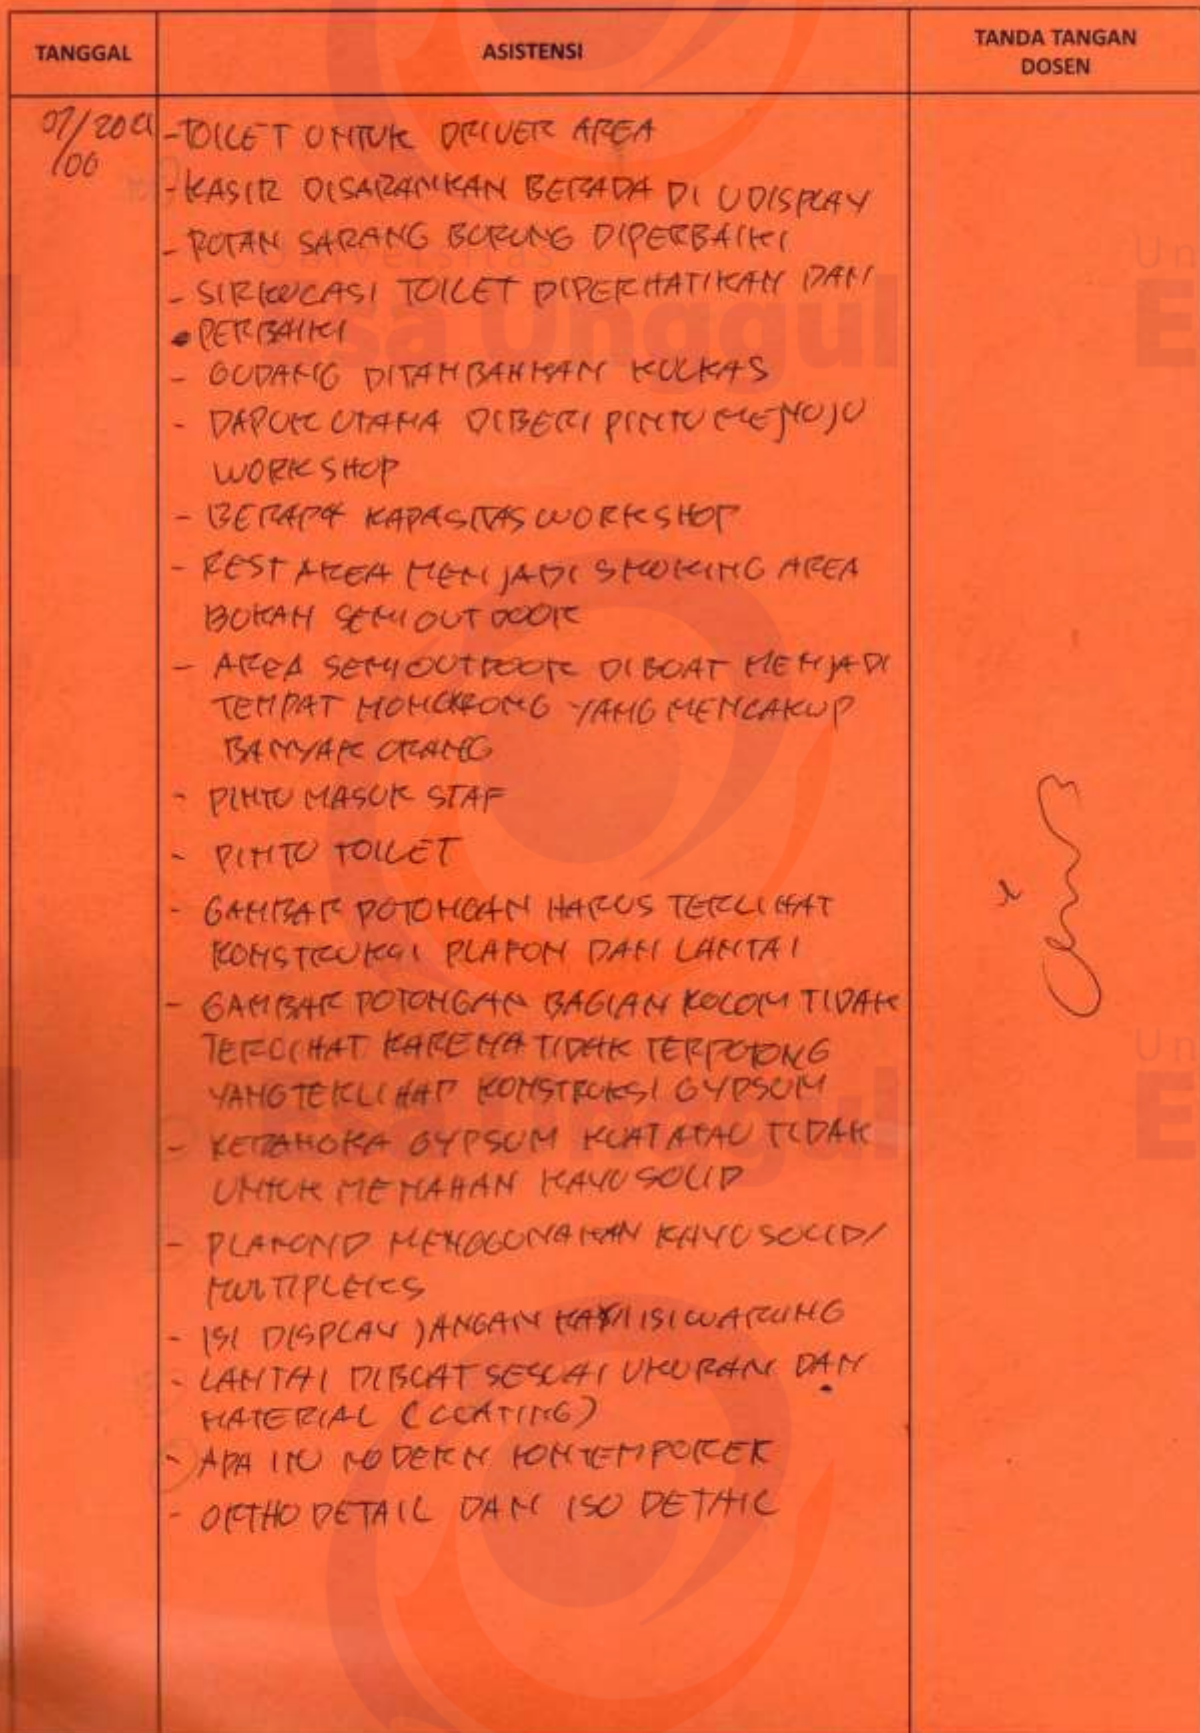 TANGGAL
ASISTENSI
TANDA TANGAN
DOSEN
07/2021
/06
-TOILET UNTUK DRIVER AREA
-KASIR DISARANKAN BERADA DI U DISPLAY
- ROTAN SARANG BURUNG DIPERBAIKI
- SIRKULASI TOILET DIPERHATIKAN DAN
PERBAIKI
- GUDANG DITAMBAHKAN KULKAS
- DAPUR UTAMA DIBERI PINTU MENUJU
WORKSHOP
- BERAPA KAPASITAS WORKSHOP
- REST AREA MENJADI SMOKING AREA
BUKAN SEMI OUTDOOR
- AREA SEMI OUTDOOR DIBUAT MENJADI
TEMPAT NONGKRONG YANG MENCAKUP
BANYAK ORANG
- PINTU MASUK STAF
- PINTU TOILET
- GAMBAR POTONGAN HARUS TERLIHAT
KONSTRUKSI PLAFON DAN LANTAI
- GAMBAR POTONGAN BAGIAN KOLOM TIDAK
TERLIHAT KARENA TIDAK TERPOTONG
YANG TERLIHAT KONSTRUKSI GYPSUM
- KERANGKA GYPSUM KUAT ATAU TIDAK
UNTUK MENAHAN KAYU SOLID
- PLAFOND MENGGUNAKAN KAYU SOLID/
MULTIPLEKS
- ISI DISPLAY JANGAN ISI WARUNG
- LANTAI DIBUAT SESUAI UKURAN DAN
MATERIAL (COATING)
- APA ITU MODERN KONTEMPORER
- ORTHO DETAIL DAN ISO DETAIL
Universitas
Esa Unggul
Un
E
Esa Unggul
Un
E